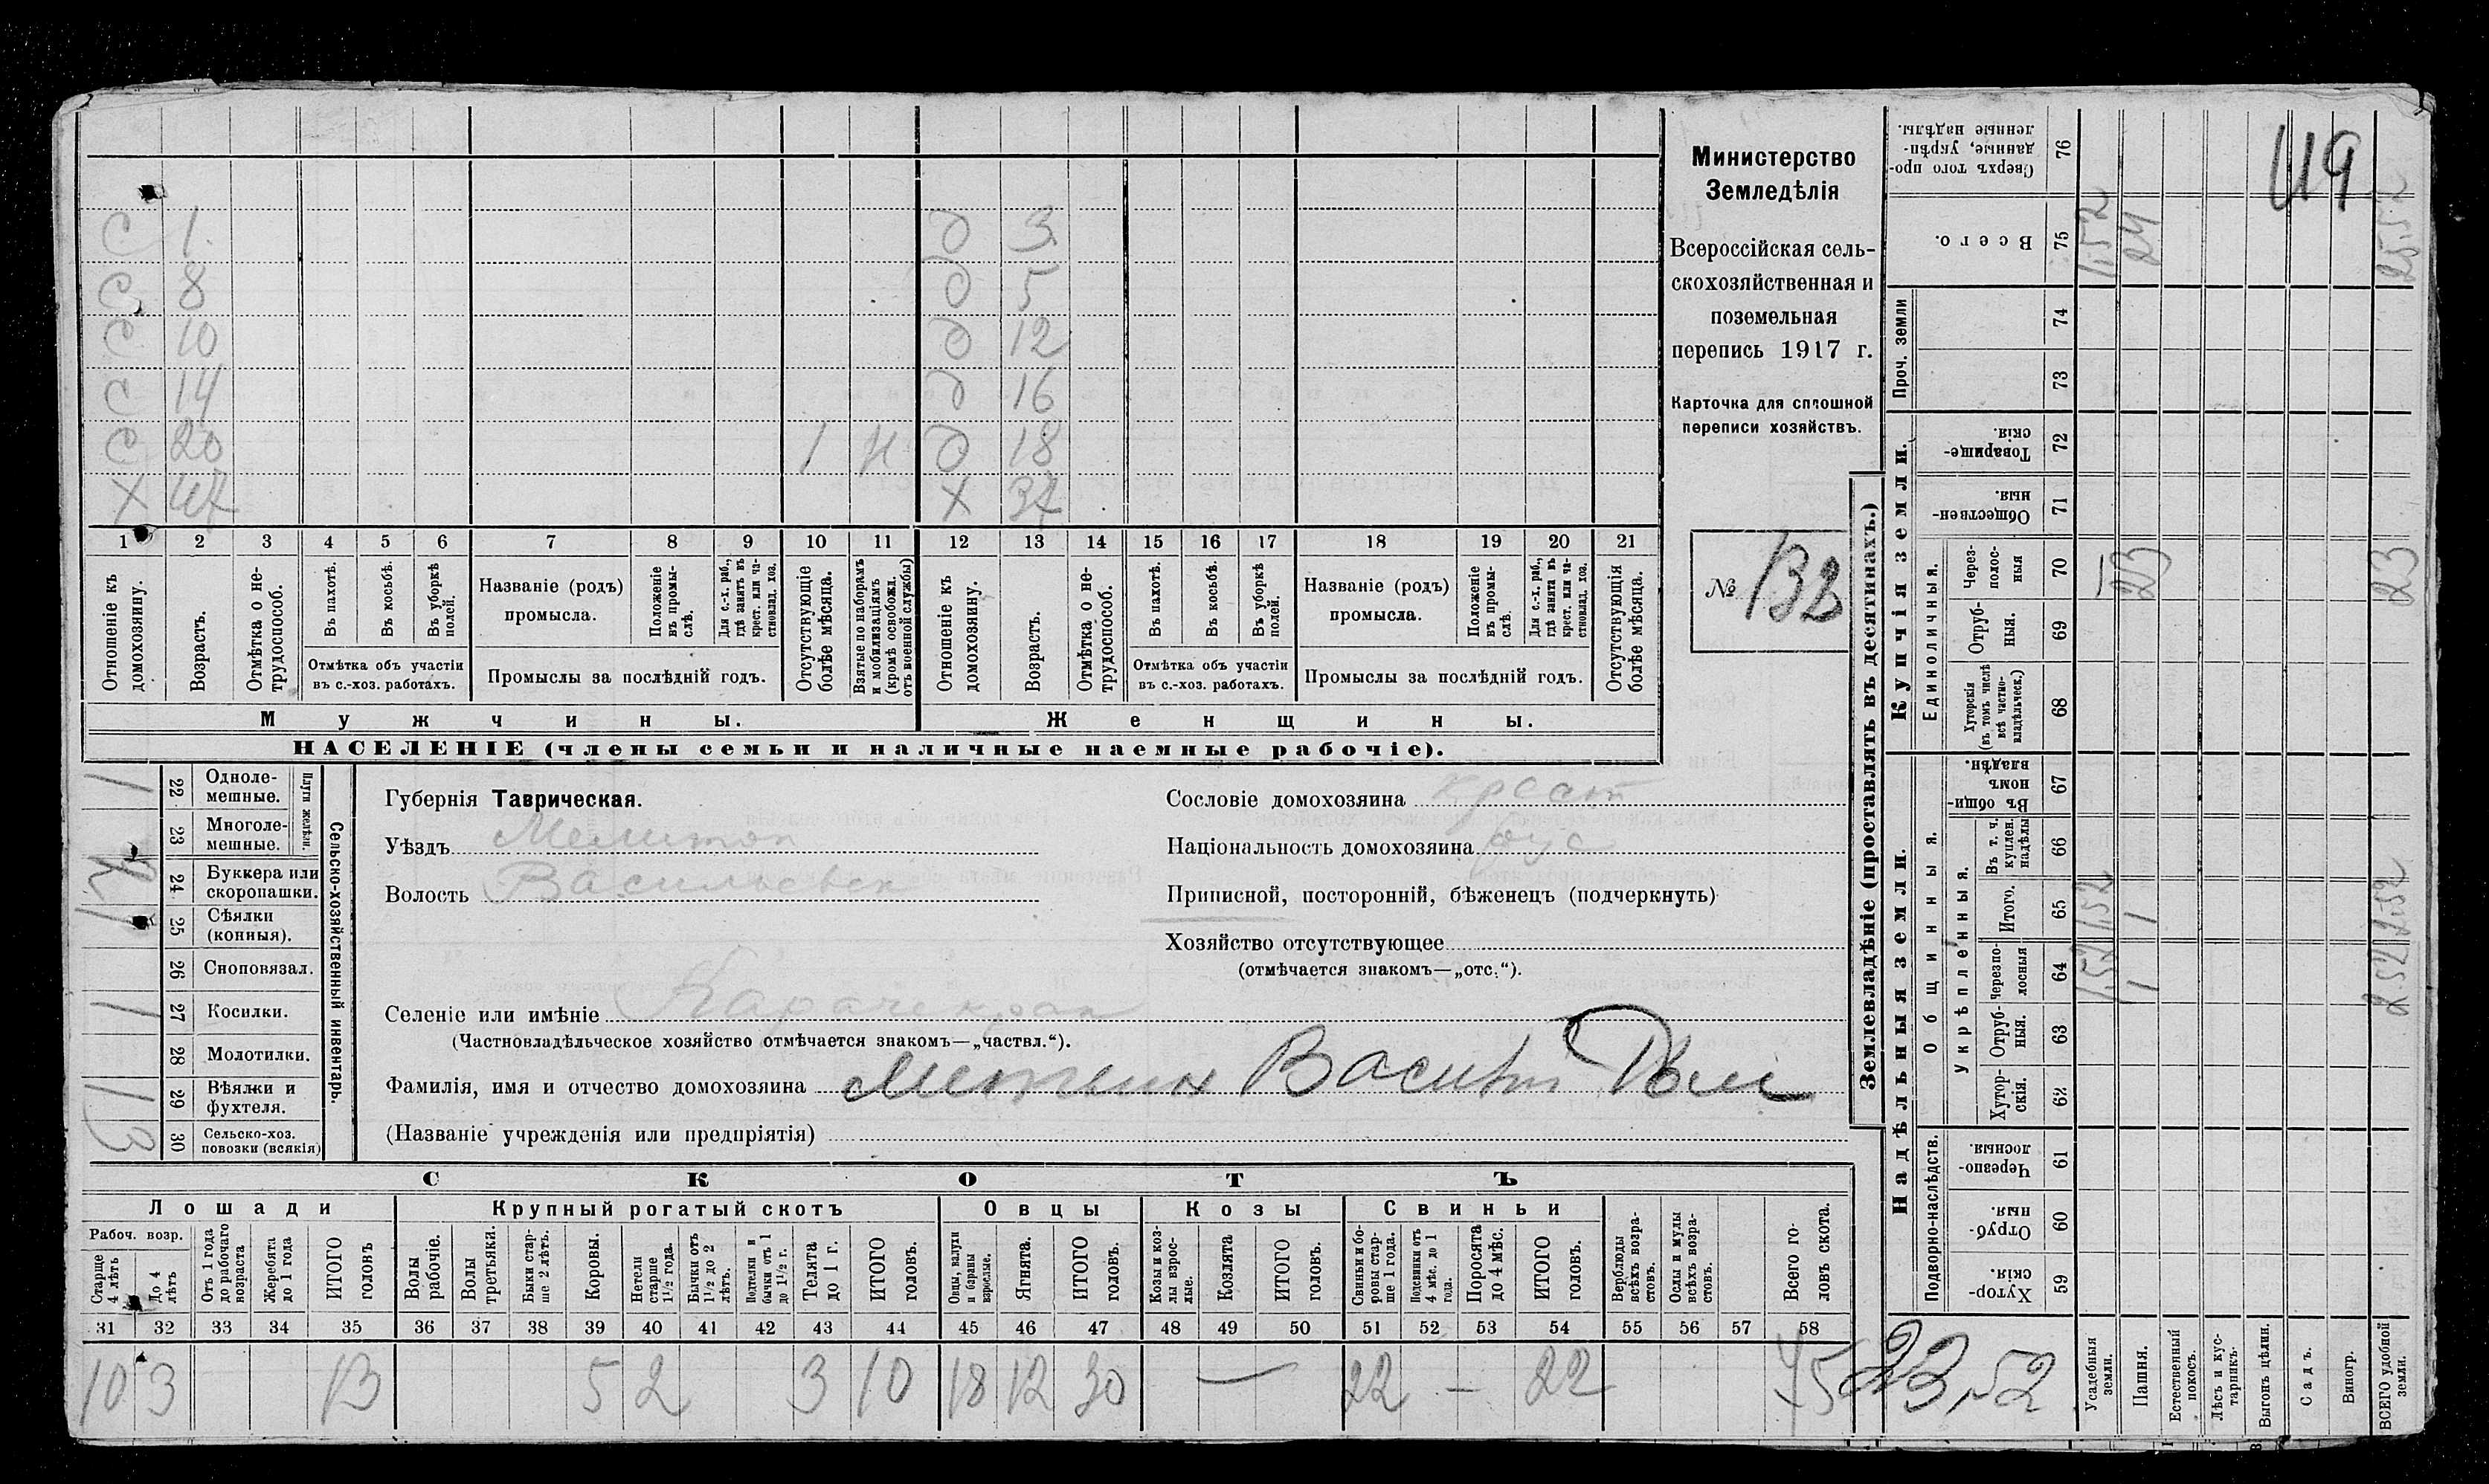 С 1 д 3
С 8 д 5
С 10 д 12
С 14 д 16
С 20 1 Н д 18
Х 47 Х 37
1 2 3 4 5 6 7 8 9 10 11 12 13 14 15 16 17 18 19 20 21
Отношеніе къ домохозяину.
Возрастъ.
Отмѣтка о нетрудоспособ.
Въ пахотѣ.
Въ косьбѣ.
Въ уборкѣ полей.
Отмѣтка объ участіи
въ с.-хоз. работахъ.
Названіе (родъ)
промысла.
Положеніе въ промыслѣ.
Для с.-х. раб., гдѣ занятъ въ крест. или частновлад. хоз.
Промыслы за послѣдній годъ.
Отсутствующіе болѣе мѣсяца.
Взятые по наборамъ и мобилизаціямъ (кромѣ освобожд. отъ военной службы)
Отношеніе къ домохозяину.
Возрастъ.
Отмѣтка о нетрудоспособ.
Въ пахотѣ.
Въ косьбѣ.
Въ уборкѣ полей.
Отмѣтка объ участіи
въ с.-хоз. работахъ.
Названіе (родъ)
промысла.
Положеніе въ промыслѣ.
Для с.-х. раб., гдѣ занята въ крест. или частновлад. хоз.
Промыслы за послѣдній годъ.
Отсутствующія болѣе мѣсяца.
Мужчины. Женщины.
НАСЕЛЕНІЕ (члены семьи и наличные наемные рабочіе).
Министерство
Земледѣлія
Всероссійская сель-
скохозяйственная и
поземельная
перепись 1917 г.
Карточка для сплошной
переписи хозяйствъ.
№ 132
1 22 Однолемешные.
23 Многолемешные.
Плуги желѣзн.
24 Буккера или скоропашки.
1 25 Сѣялки (конныя).
26 Сноповязал.
1 27 Косилки.
28 Молотилки.
1 29 Вѣялки и фухтеля.
3 30 Сельско-хоз. повозки (всякія)
Сельско-хозяйственный инвентарь.
Губернія Таврическая.
Уѣздъ Мелитоп
Волость Васильевск
Сословіе домохозяина крест
Національность домохозяина рус
Приписной, посторонній, бѣженецъ (подчеркнуть)
Хозяйство отсутствующее
(отмѣчается знакомъ—„отс.“).
Селеніе или имѣніе Карачекрак
(Частновладѣльческое хозяйство отмѣчается знакомъ—„частвл.“).
Фамилія, имя и отчество домохозяина
(Названіе учрежденія или предпріятія)
СКОТЪ
Лошади Крупный рогатый скотъ Овцы Козы Свиньи
Рабоч. возр.
Старше 4 лѣтъ
До 4 лѣтъ
Отъ 1 года до рабочаго возраста
Жеребята до 1 года
ИТОГО головъ
Волы рабочіе.
Волы третьяки.
Быки старше 2 лѣтъ.
Коровы.
Нетели старше 1½ года.
Бычки отъ 1½ до 2 лѣтъ.
Подтелки и бычки отъ 1 до 1½ г.
Телята до 1 г.
ИТОГО головъ.
Овцы, валухи и бараны взрослые.
Ягнята.
ИТОГО головъ.
Козы и козлы взрослые.
Козлята
ИТОГО головъ.
Свиньи и боровы старше 1 года.
Подсвинки отъ 4 мѣс. до 1 года.
Поросята до 4 мѣс.
ИТОГО головъ.
Верблюды всѣхъ возрастовъ.
Ослы и мулы всѣхъ возрастовъ.
Всего головъ скота.
31 32 33 34 35 36 37 38 39 40 41 42 43 44 45 46 47 48 49 50 51 52 53 54 55 56 57 58
10 3 13 5 2 3 10 18 12 30 — 22 — 22 75
23,52
Землевладѣніе (проставлять въ десятинахъ.)
Купчія земли.
Надѣльныя земли.
119
Сверхъ того проданные, укрѣпленные надѣлы. 76
Всего. 75 1.52 24 25.52
Проч. земли 74
73
Товарищескія. 72
Общественныя. 71
Единоличныя.
Черезполосныя 70 — 23 23
Отрубныя. 69
Хуторскія (въ томъ числѣ всѣ частновладѣльческ.) 68
Общинныя.
Въ общинномъ владѣн. 67
Укрѣпленныя.
Въ т. ч. куплен. надѣлы 66
Итого. 65 1.52 1 2.52
Черезполосныя 64 1.52 1 2.52
Отрубныя. 63
Хуторскія. 62
Подворно-наслѣдств.
Черезполосныя. 61
Отрубныя. 60
Хуторскія. 59
Усадебныя земли.
Пашня.
Естественный покосъ.
Лѣсъ и кустарникъ.
Выгонъ цѣлин.
Садъ.
Виногр.
ВСЕГО удобной земли.